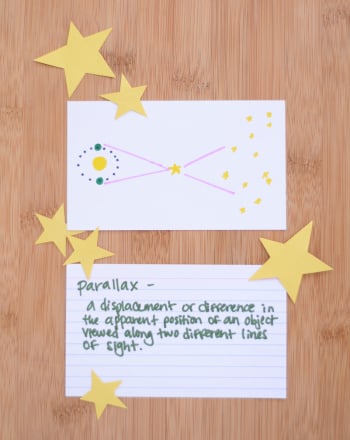 parallax -
a displacement or difference in
the apparent position of an object
viewed along two different lines
of sight.